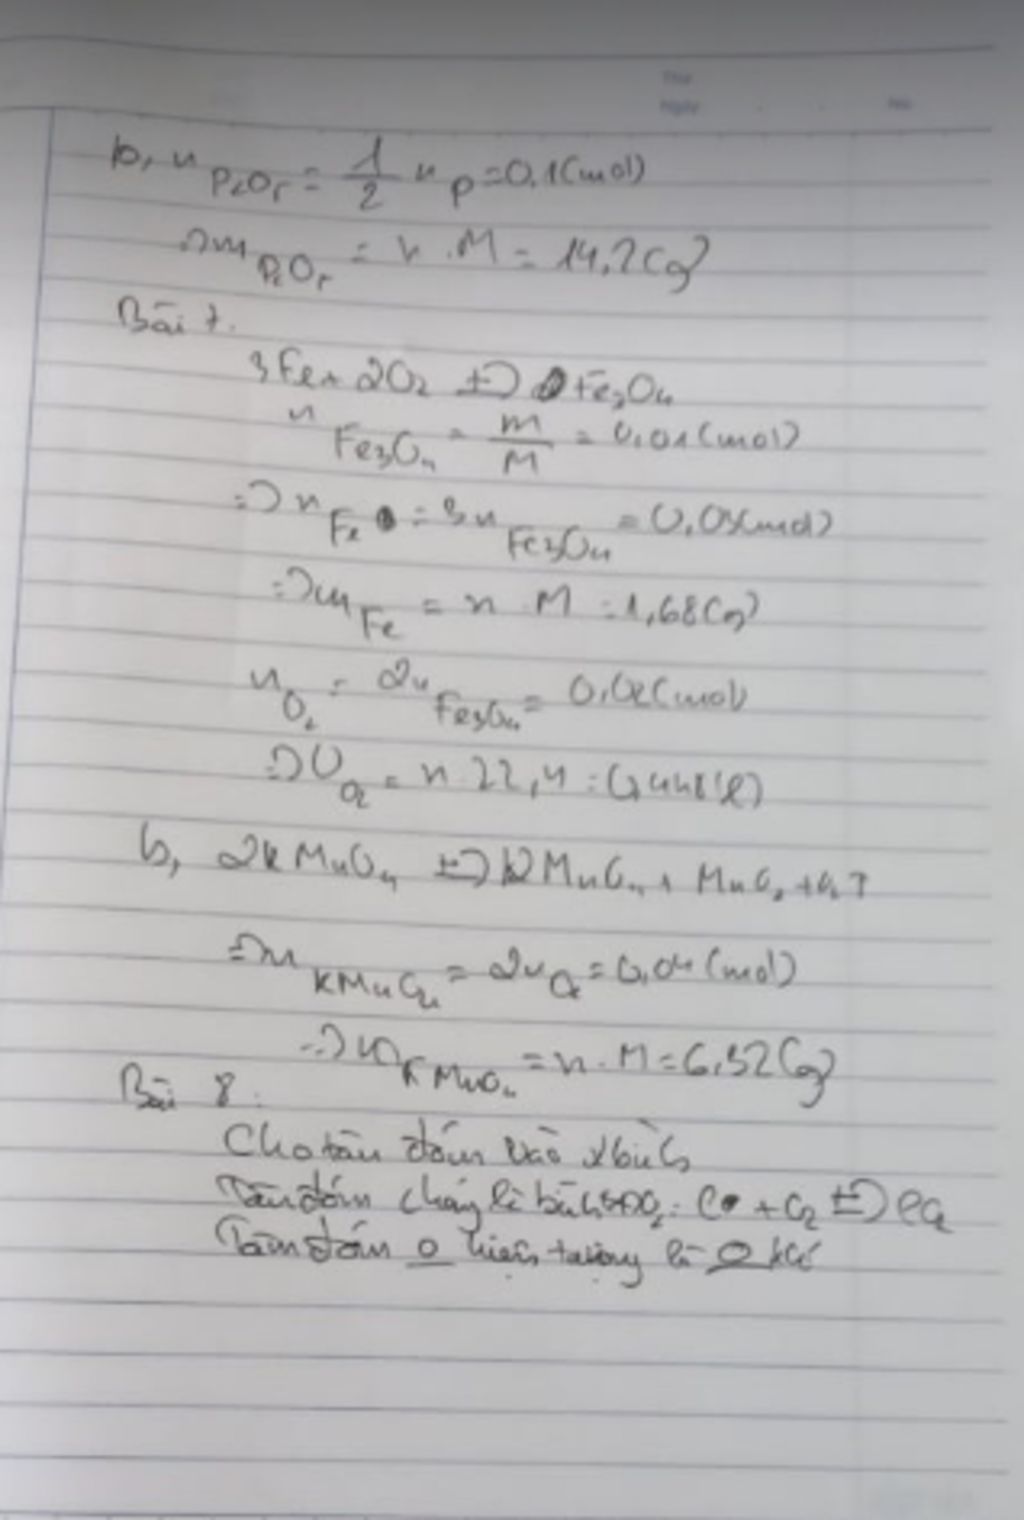 Thứ
Ngày No.
b, n P₂O₅ = 1/2 n P = 0,1 (mol)
=> m P₂O₅ = n . M = 14,2 (g)
Bài 7.
3Fe + 2O₂ t° -> Fe₃O₄
n Fe₃O₄ = m/M = 0,01 (mol)
=> n Fe = 3n Fe₃O₄ = 0,03 (mol)
=> m Fe = n . M = 1,68 (g)
n O₂ = 2n Fe₃O₄ = 0,02 (mol)
=> V O₂ = n . 22,4 = 0,448 (l)
b, 2KMnO₄ t° -> K₂MnO₄ + MnO₂ + O₂ ↑
=> n KMnO₄ = 2n O₂ = 0,04 (mol)
=> m KMnO₄ = n . M = 6,32 (g)
Bài 8.
Cho tàn đóm vào
Tàn đóm cháy là bình O₂: C + O₂ t° -> CO₂
Tàn đóm 0 hiện tượng là 0 khí